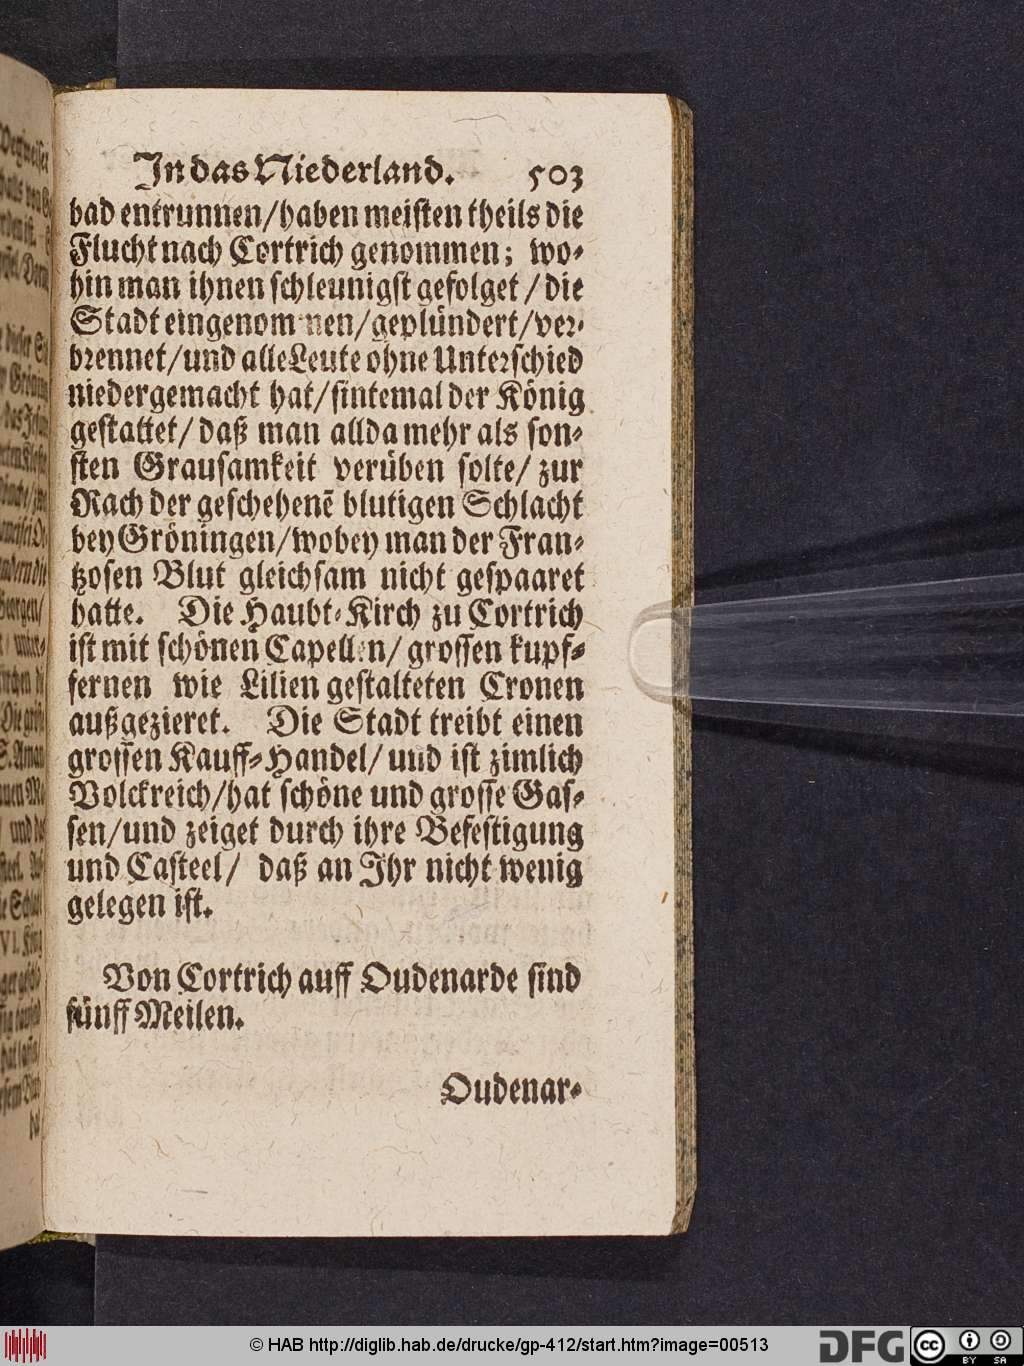 In das Niederland. 503
bad entrunnen/haben meisten theils die
Flucht nach Cortrich genommen; wo-
hin man ihnen schleunigst gefolget / die
Stadt eingenommen/geplündert/ver-
brennet/und alle Leute ohne Unterschied
niedergemacht hat/sintemal der König
gestattet/daß man allda mehr als son-
sten Grausamkeit verüben solte/ zur
Rach der geschehenē blutigen Schlacht
bey Gröningen/wobey man der Fran-
tzosen Blut gleichsam nicht gespaaret
hatte. Die Haubt-Kirch zu Cortrich
ist mit schönen Capellen/ grossen kupf-
fernen wie Lilien gestalteten Cronen
außgezieret. Die Stadt treibt einen
grossen Kauff-Handel/ und ist zimlich
Volckreich/hat schöne und grosse Gas-
sen/und zeiget durch ihre Befestigung
und Casteel/ daß an Ihr nicht wenig
gelegen ist.
Von Cortrich auff Oudenarde sind
fünff Meilen.
Oudenar-
© HAB http://diglib.hab.de/drucke/gp-412/start.htm?image=00513
DFG
cc BY SA